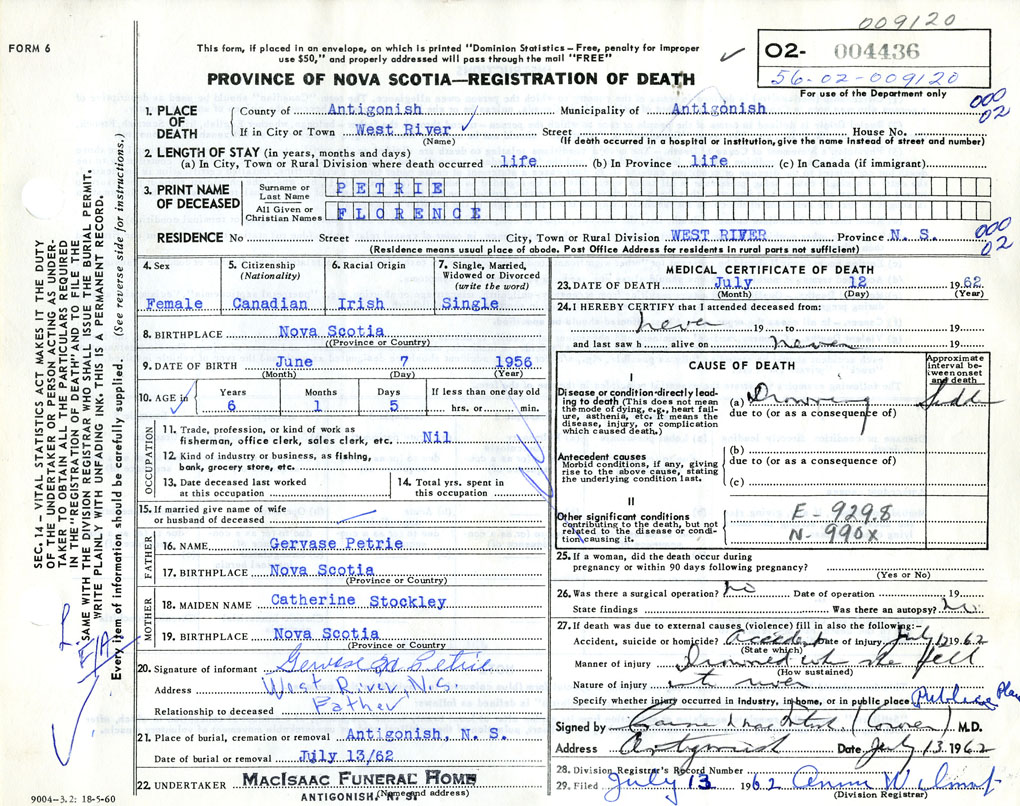 009120
FORM 6
This form, if placed in an envelope, on which is printed "Dominion Statistics – Free, penalty for improper
use $50," and properly addressed will pass through the mail "FREE"
02- 004436
56-02-009120
For use of the Department only
PROVINCE OF NOVA SCOTIA—REGISTRATION OF DEATH
000
02
1. PLACE OF DEATH
County of Antigonish Municipality of Antigonish
If in City or Town West River Street House No.
(Name) (If death occurred in a hospital or institution, give the name instead of street and number)
2. LENGTH OF STAY (in years, months and days)
(a) In City, Town or Rural Division where death occurred life (b) In Province life (c) In Canada (if immigrant)
3. PRINT NAME OF DECEASED
Surname or Last Name PETRIE
All Given or Christian Names FLORENCE
RESIDENCE No Street City, Town or Rural Division WEST RIVER Province N. S.
(Residence means usual place of abode. Post Office Address for residents in rural parts not sufficient)
000
02
4. Sex Female
5. Citizenship (Nationality) Canadian
6. Racial Origin Irish
7. Single, Married, Widowed or Divorced (write the word) Single
8. BIRTHPLACE Nova Scotia
(Province or Country)
9. DATE OF BIRTH June 7 1956
(Month) (Day) (Year)
10. AGE in Years Months Days If less than one day old
6 1 5 hrs. or min.
OCCUPATION
11. Trade, profession, or kind of work as
fisherman, office clerk, sales clerk, etc. Nil
12. Kind of industry or business, as fishing,
bank, grocery store, etc.
13. Date deceased last worked
at this occupation
14. Total yrs. spent in
this occupation
15. If married give name of wife
or husband of deceased
FATHER
16. NAME Gervase Petrie
17. BIRTHPLACE Nova Scotia
(Province or Country)
MOTHER
18. MAIDEN NAME Catherine Stockley
19. BIRTHPLACE Nova Scotia
(Province or Country
20. Signature of informant Petrie
Address West River, N.S.
Relationship to deceased Father
21. Place of burial, cremation or removal Antigonish, N. S.
Date of burial or removal July 13/62
22. UNDERTAKER MacIsaac Funeral Home
ANTIGONISH, N. S.
(Name and address)
9004-3.2: 18-5-60
MEDICAL CERTIFICATE OF DEATH
23. DATE OF DEATH July 12 1962
(Month) (Day) (Year)
24. I HEREBY CERTIFY that I attended deceased from:
never 19 to 19
and last saw h alive on never 19
CAUSE OF DEATH
Approximate interval between onset and death
I
Disease or condition directly leading to death (This does not mean
the mode of dying, e.g., heart failure, asthenia, etc. It means the
disease, injury, or complication
which caused death.)
(a) Drowning
due to (or as a consequence of)
Antecedent causes
Morbid conditions, if any, giving
rise to the above cause, stating
the underlying condition last.
(b)
due to (or as a consequence of)
(c)
II
Other significant conditions
contributing to the death, but not
related to the disease or condition causing it.
E-929.8
N-990X
25. If a woman, did the death occur during
pregnancy or within 90 days following pregnancy?
(Yes or No)
26. Was there a surgical operation? No Date of operation 19
State findings Was there an autopsy? No
27. If death was due to external causes (violence) fill in also the following:-
Accident, suicide or homicide? Accident Date of injury July 12 1962
(State which)
Manner of injury Drowned when she fell
(How sustained)
Nature of injury into river
Specify whether injury occurred in industry, in home, or in public place Public Place
Signed by (Coroner) M.D.
Address Antigonish Date July 13 1962
28. Division Registrar's Record Number
29. Filed July 13 1962
(Division Registrar)
SEC. 14 – VITAL STATISTICS ACT MAKES IT THE DUTY
OF THE UNDERTAKER OR PERSON ACTING AS UNDERTAKER TO OBTAIN ALL THE PARTICULARS REQUIRED
IN THE "REGISTRATION OF DEATH" AND TO FILE THE
SAME WITH THE DIVISION REGISTRAR WHO SHALL ISSUE THE BURIAL PERMIT.
WRITE PLAINLY WITH UNFADING INK. THIS IS A PERMANENT RECORD.
Every item of information should be carefully supplied. (See reverse side for instructions.)